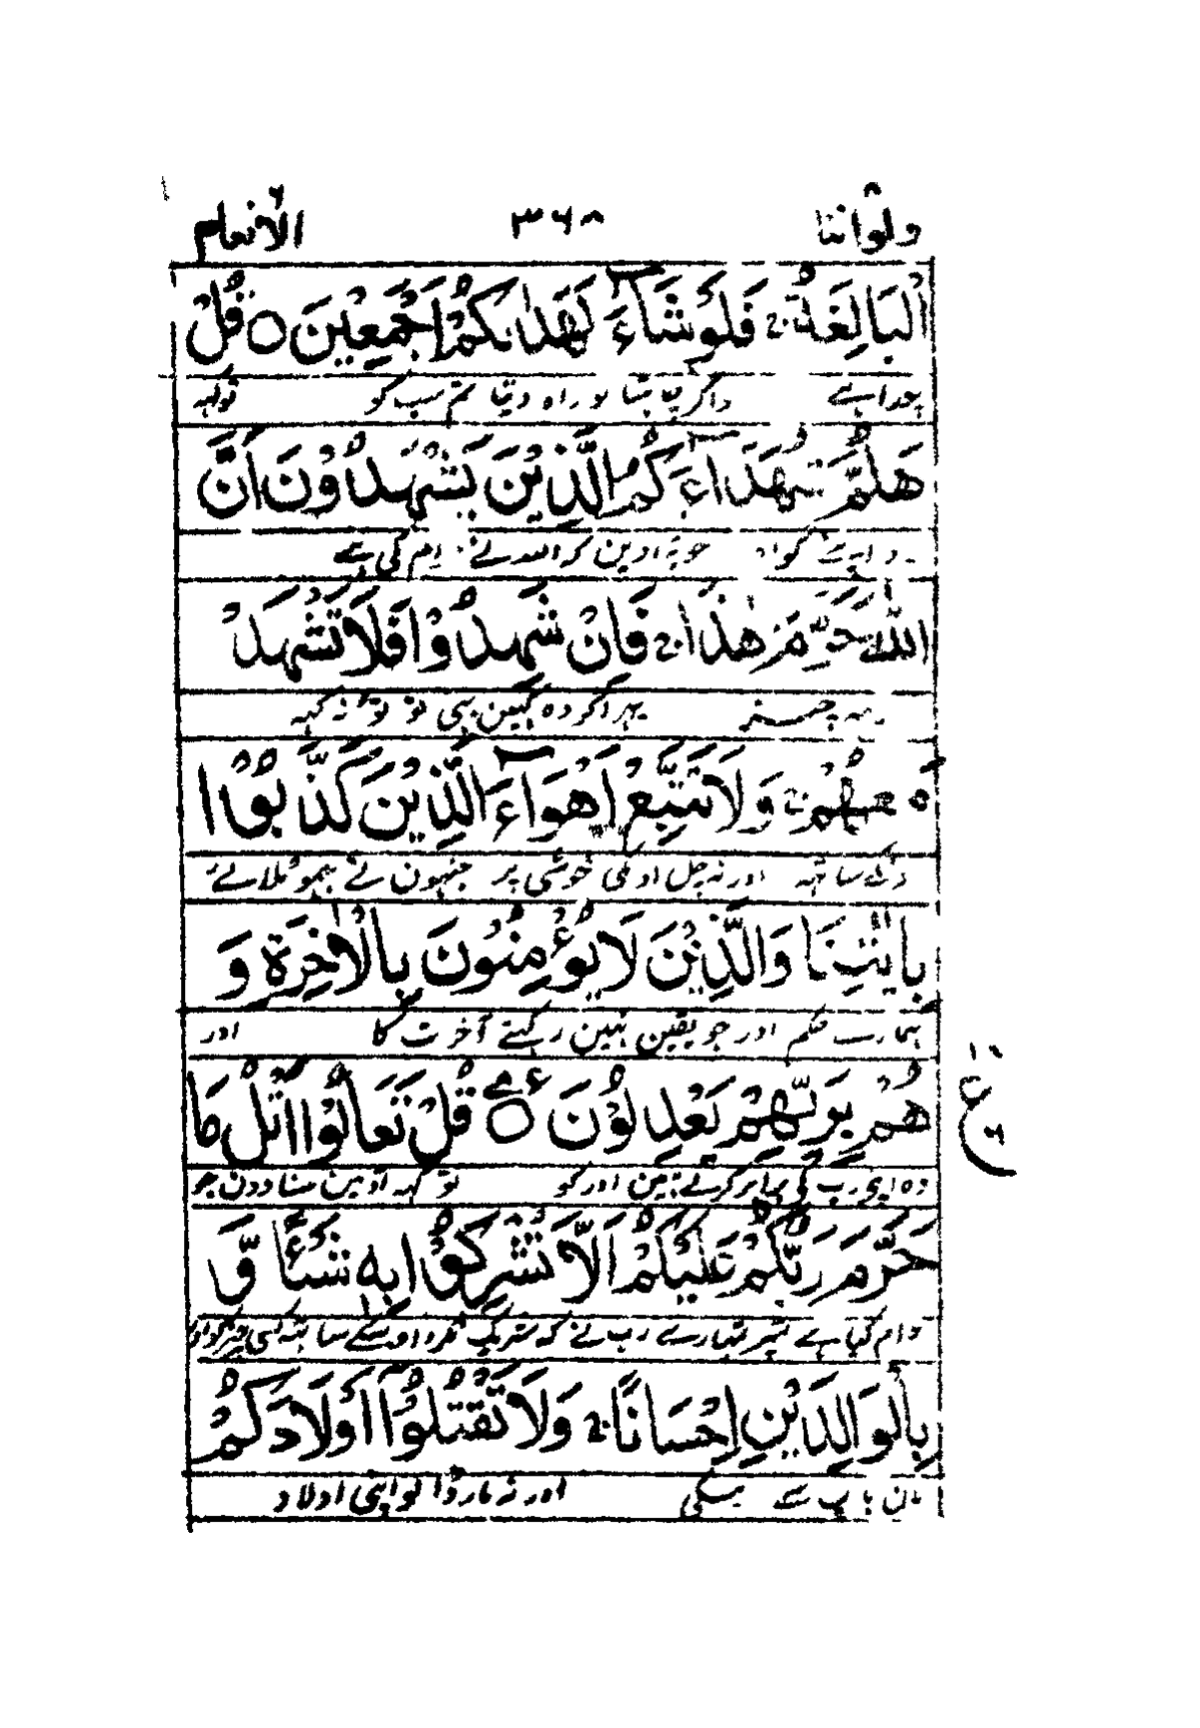 ولواننا ۳۶۸ الانعام
الْبَالِغَةُ ج فَلَوْ شَآءَ لَهَدٰىكُمْ اَجْمَعِيْنَ ○ قُلْ
اگر چاہتا تو راہ دیتا تم سب کو تو کہہ
هَلُمَّ شُهَدَآءَكُمُ الَّذِيْنَ يَشْهَدُوْنَ اَنَّ
گواہ جو بتادین کہ اللہ نے کی ہے
اللّٰهَ حَرَّمَ هٰذَا ج فَاِنْ شَهِدُوْا فَلَا تَشْهَدْ
یہہ چیز پہر اگر وہ کہین بہی تو تو نہ کہہ
مَعَهُمْ ج وَلَا تَتَّبِعْ اَهْوَآءَ الَّذِيْنَ كَذَّبُوْا
ساتہہ اور نہ چل اونکی خوشی پر جنہون نے جہوٹلائے
بِاٰيٰتِنَا وَالَّذِيْنَ لَا يُؤْمِنُوْنَ بِالْاٰخِرَةِ وَ
ہمارے حکم اور جو یقین نہین رکہتے آخرت کا اور
هُمْ بِرَبِّهِمْ يَعْدِلُوْنَ ○ ع قُلْ تَعَالَوْا اَتْلُ مَا
وہ اپنی رب کی برابر کرتے ہین اور کو تو کہہ آؤ مین سنا دون جو
ع
حَرَّمَ رَبُّكُمْ عَلَيْكُمْ اَلَّا تُشْرِكُوْا بِهٖ شَيْـًٔا وَّ
حرام کیا ہے تمپر تمہارے رب نے کہ شریک نکرو اوسکے ساتہہ کسی چیز کو اور
بِالْوَالِدَيْنِ اِحْسَانًا ج وَلَا تَقْتُلُوْٓا اَوْلَادَكُمْ
مان باپ سے نیکی اور نہ مار ڈالو اپنی اولاد